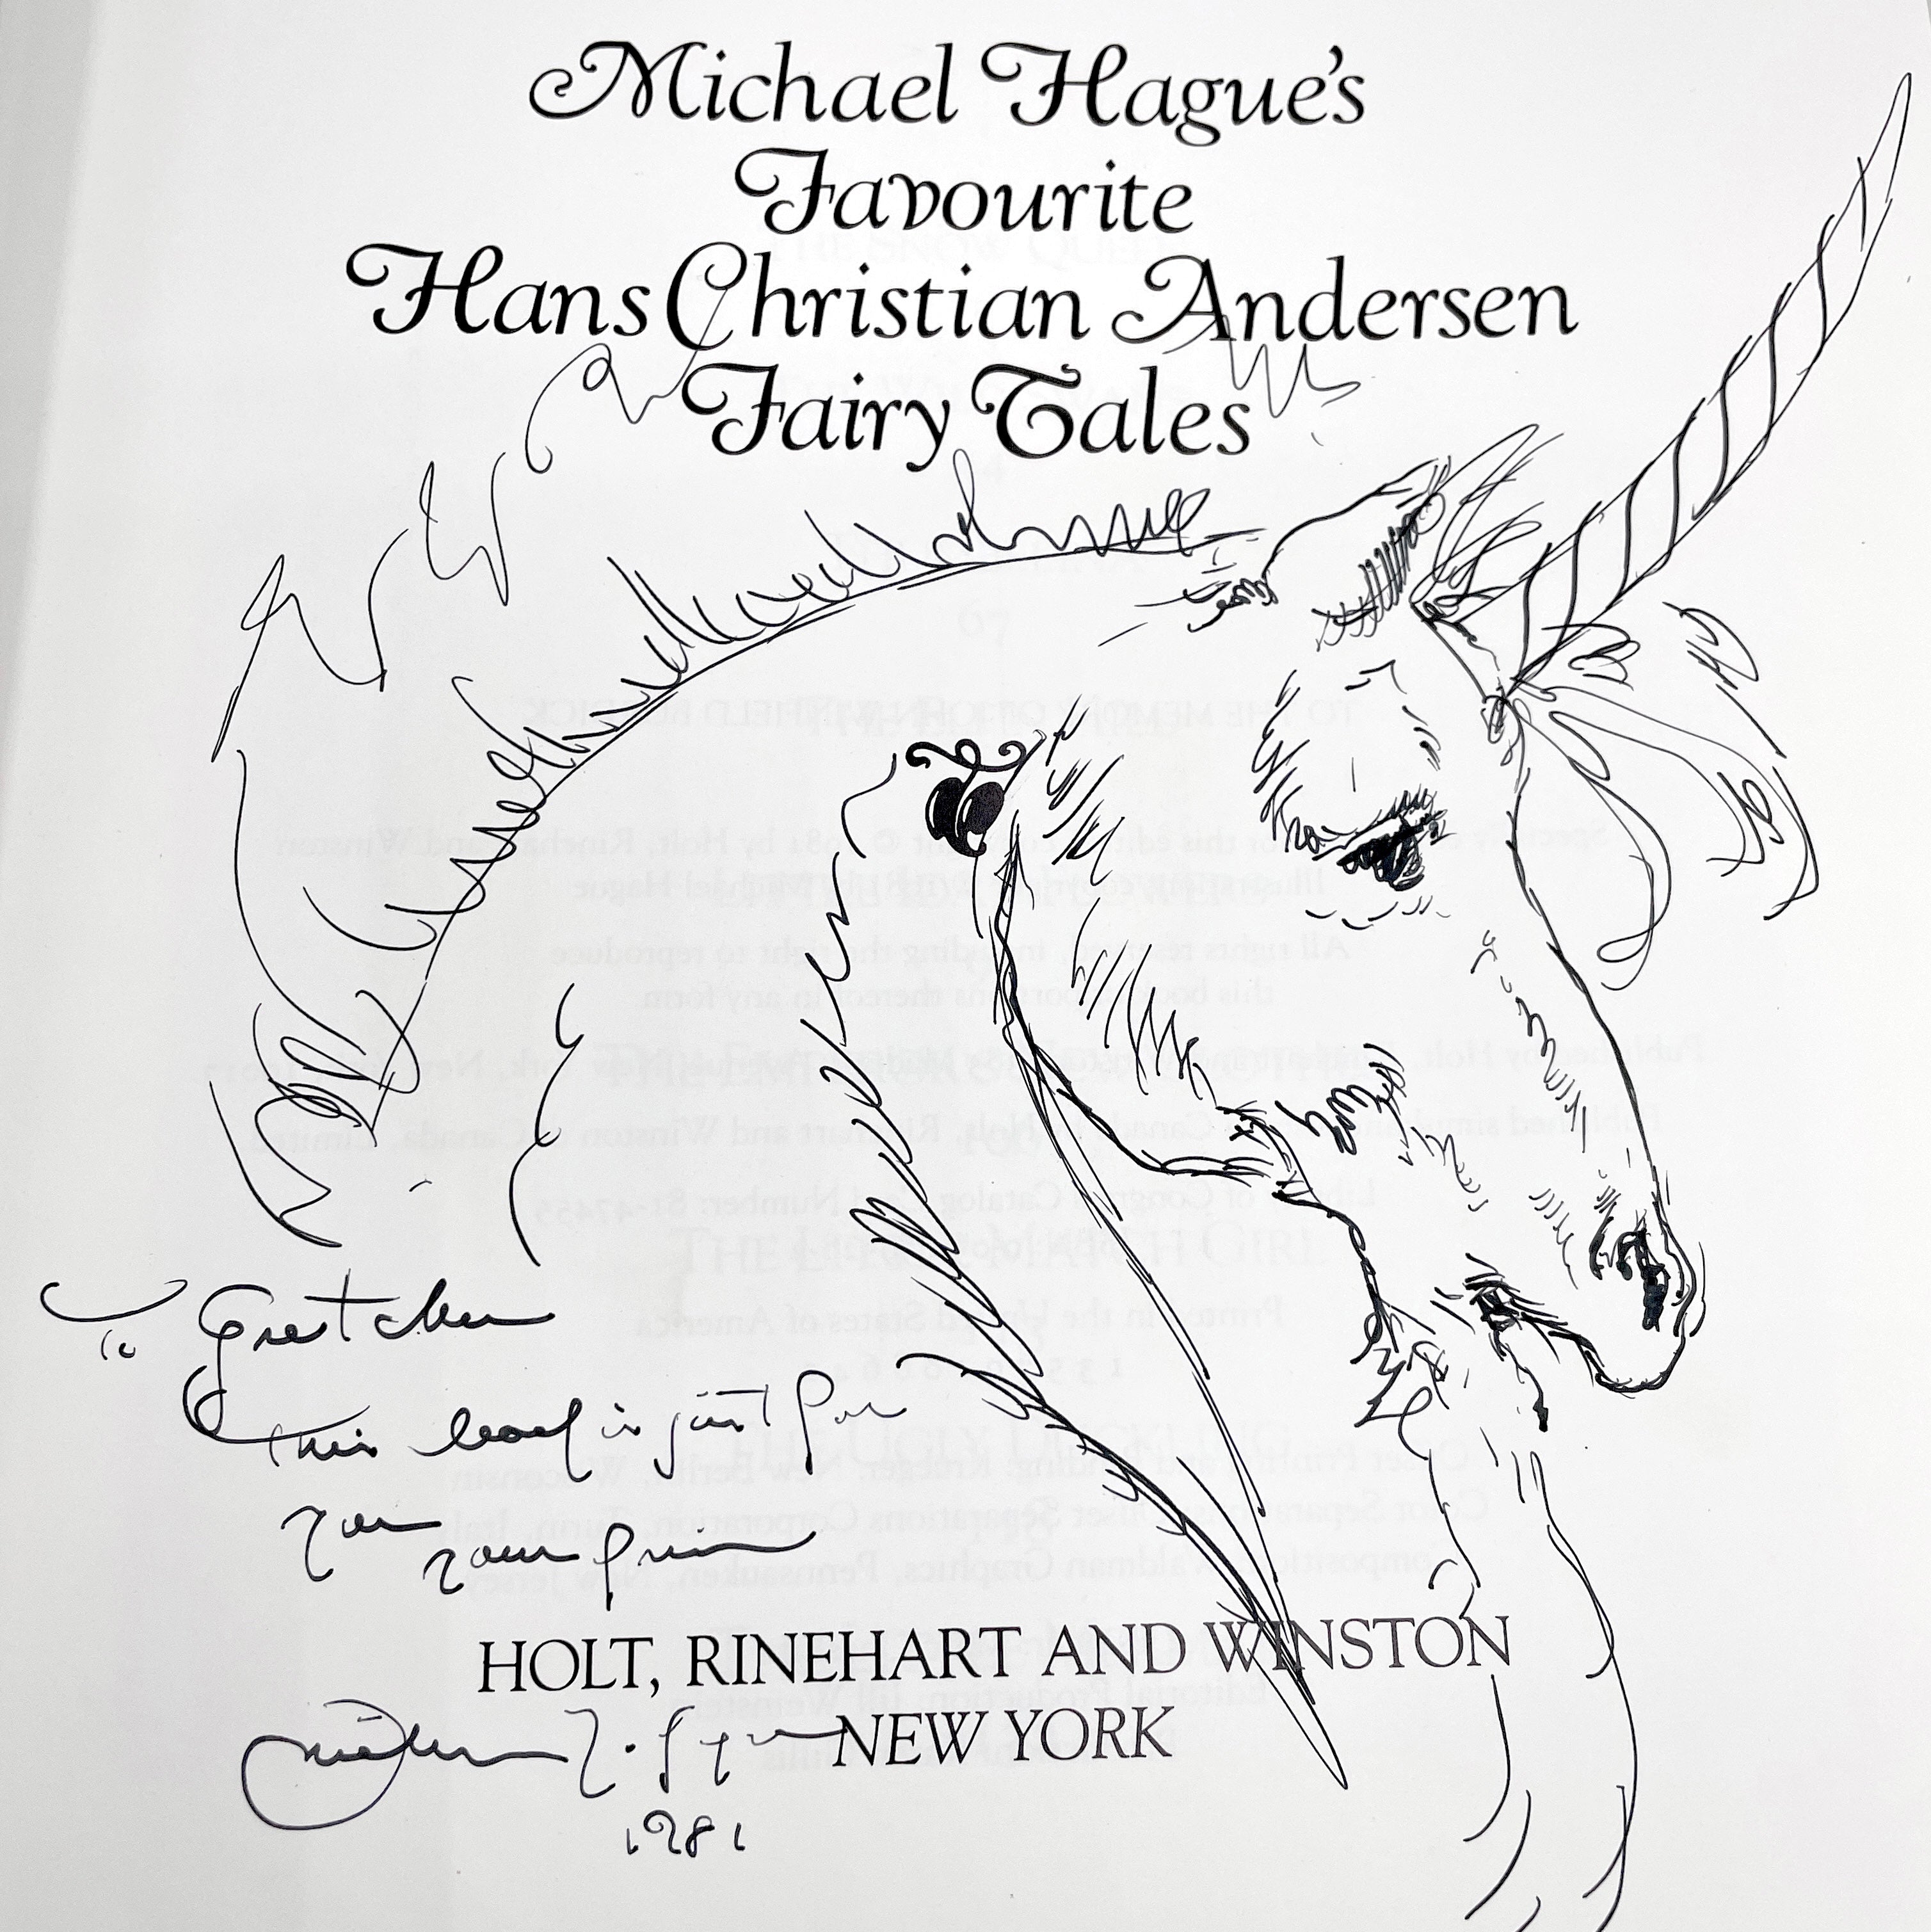 Michael Hague's
Favourite
Hans Christian Andersen
Fairy Tales
To Gretchen
this book is just for
you
your friend
HOLT, RINEHART AND WINSTON
NEW YORK
Michael Hague
1981